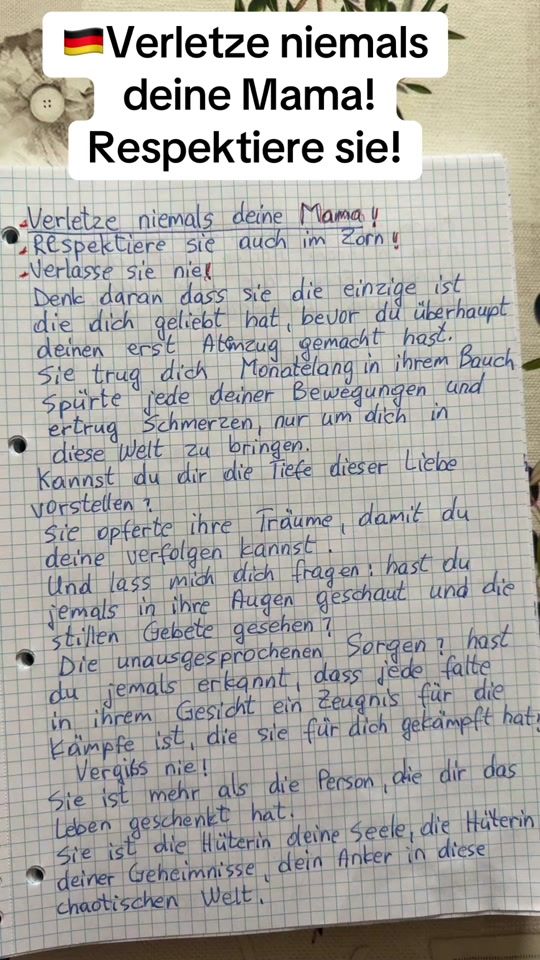 🇩🇪Verletze niemals
deine Mama!
Respektiere sie!
Verletze niemals deine Mama!
Respektiere sie auch im Zorn!
Verlasse sie nie!
Denk daran dass sie die einzige ist
die dich geliebt hat, bevor du überhaupt
deinen erst Atemzug gemacht hast.
Sie trug dich Monatelang in ihrem Bauch
Spürte jede deiner Bewegungen und
ertrug Schmerzen, nur um dich in
diese Welt zu bringen.
Kannst du dir die Tiefe dieser Liebe
vorstellen?
Sie opferte ihre Träume, damit du
deine verfolgen kannst.
Und lass mich dich fragen: hast du
jemals in ihre Augen geschaut und die
stillen Gebete gesehen?
Die unausgesprochenen Sorgen? hast
du jemals erkannt, dass jede falte
in ihrem Gesicht ein Zeugnis für die
Kämpfe ist, die sie für dich gekämpft hat?
Vergiss nie!
Sie ist mehr als die Person, die dir das
Leben geschenkt hat.
Sie ist die Hüterin deine Seele, die Hüterin
deiner Geheimnisse, dein Anker in diese
chaotischen Welt.